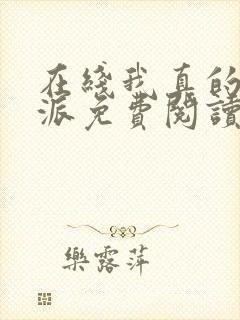 在綫我真的
派免費閱讀
樂露萍